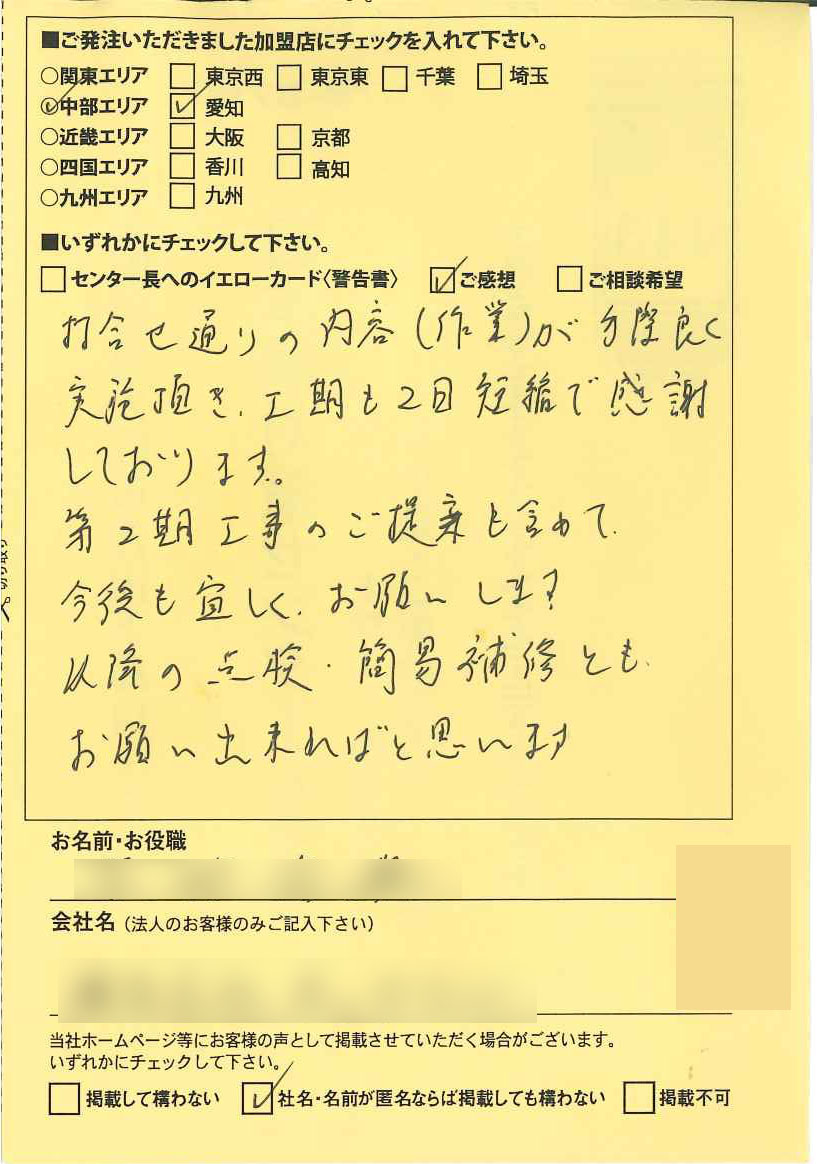 ■ご発注いただきました加盟店にチェックを入れて下さい。
○関東エリア □ 東京西 □ 東京東 □ 千葉 □ 埼玉
○中部エリア ☑ 愛知
○近畿エリア □ 大阪 □ 京都
○四国エリア □ 香川 □ 高知
○九州エリア □ 九州
■いずれかにチェックして下さい。
□センター長へのイエローカード〈警告書〉 ☑ご感想 □ご相談希望
打合せ通りの内容(作業)が手際良く
実施頂き、工期も2日短縮で感謝
しております。
第2期工事のご提案も含めて
今後も宜しく、お願いします
以降の点検・簡易補修とも、
お願い出来ればと思います
お名前・お役職
会社名(法人のお客様のみご記入下さい)
当社ホームページ等にお客様の声として掲載させていただく場合がございます。
いずれかにチェックして下さい。
□掲載して構わない ☑社名・名前が匿名ならば掲載しても構わない □掲載不可